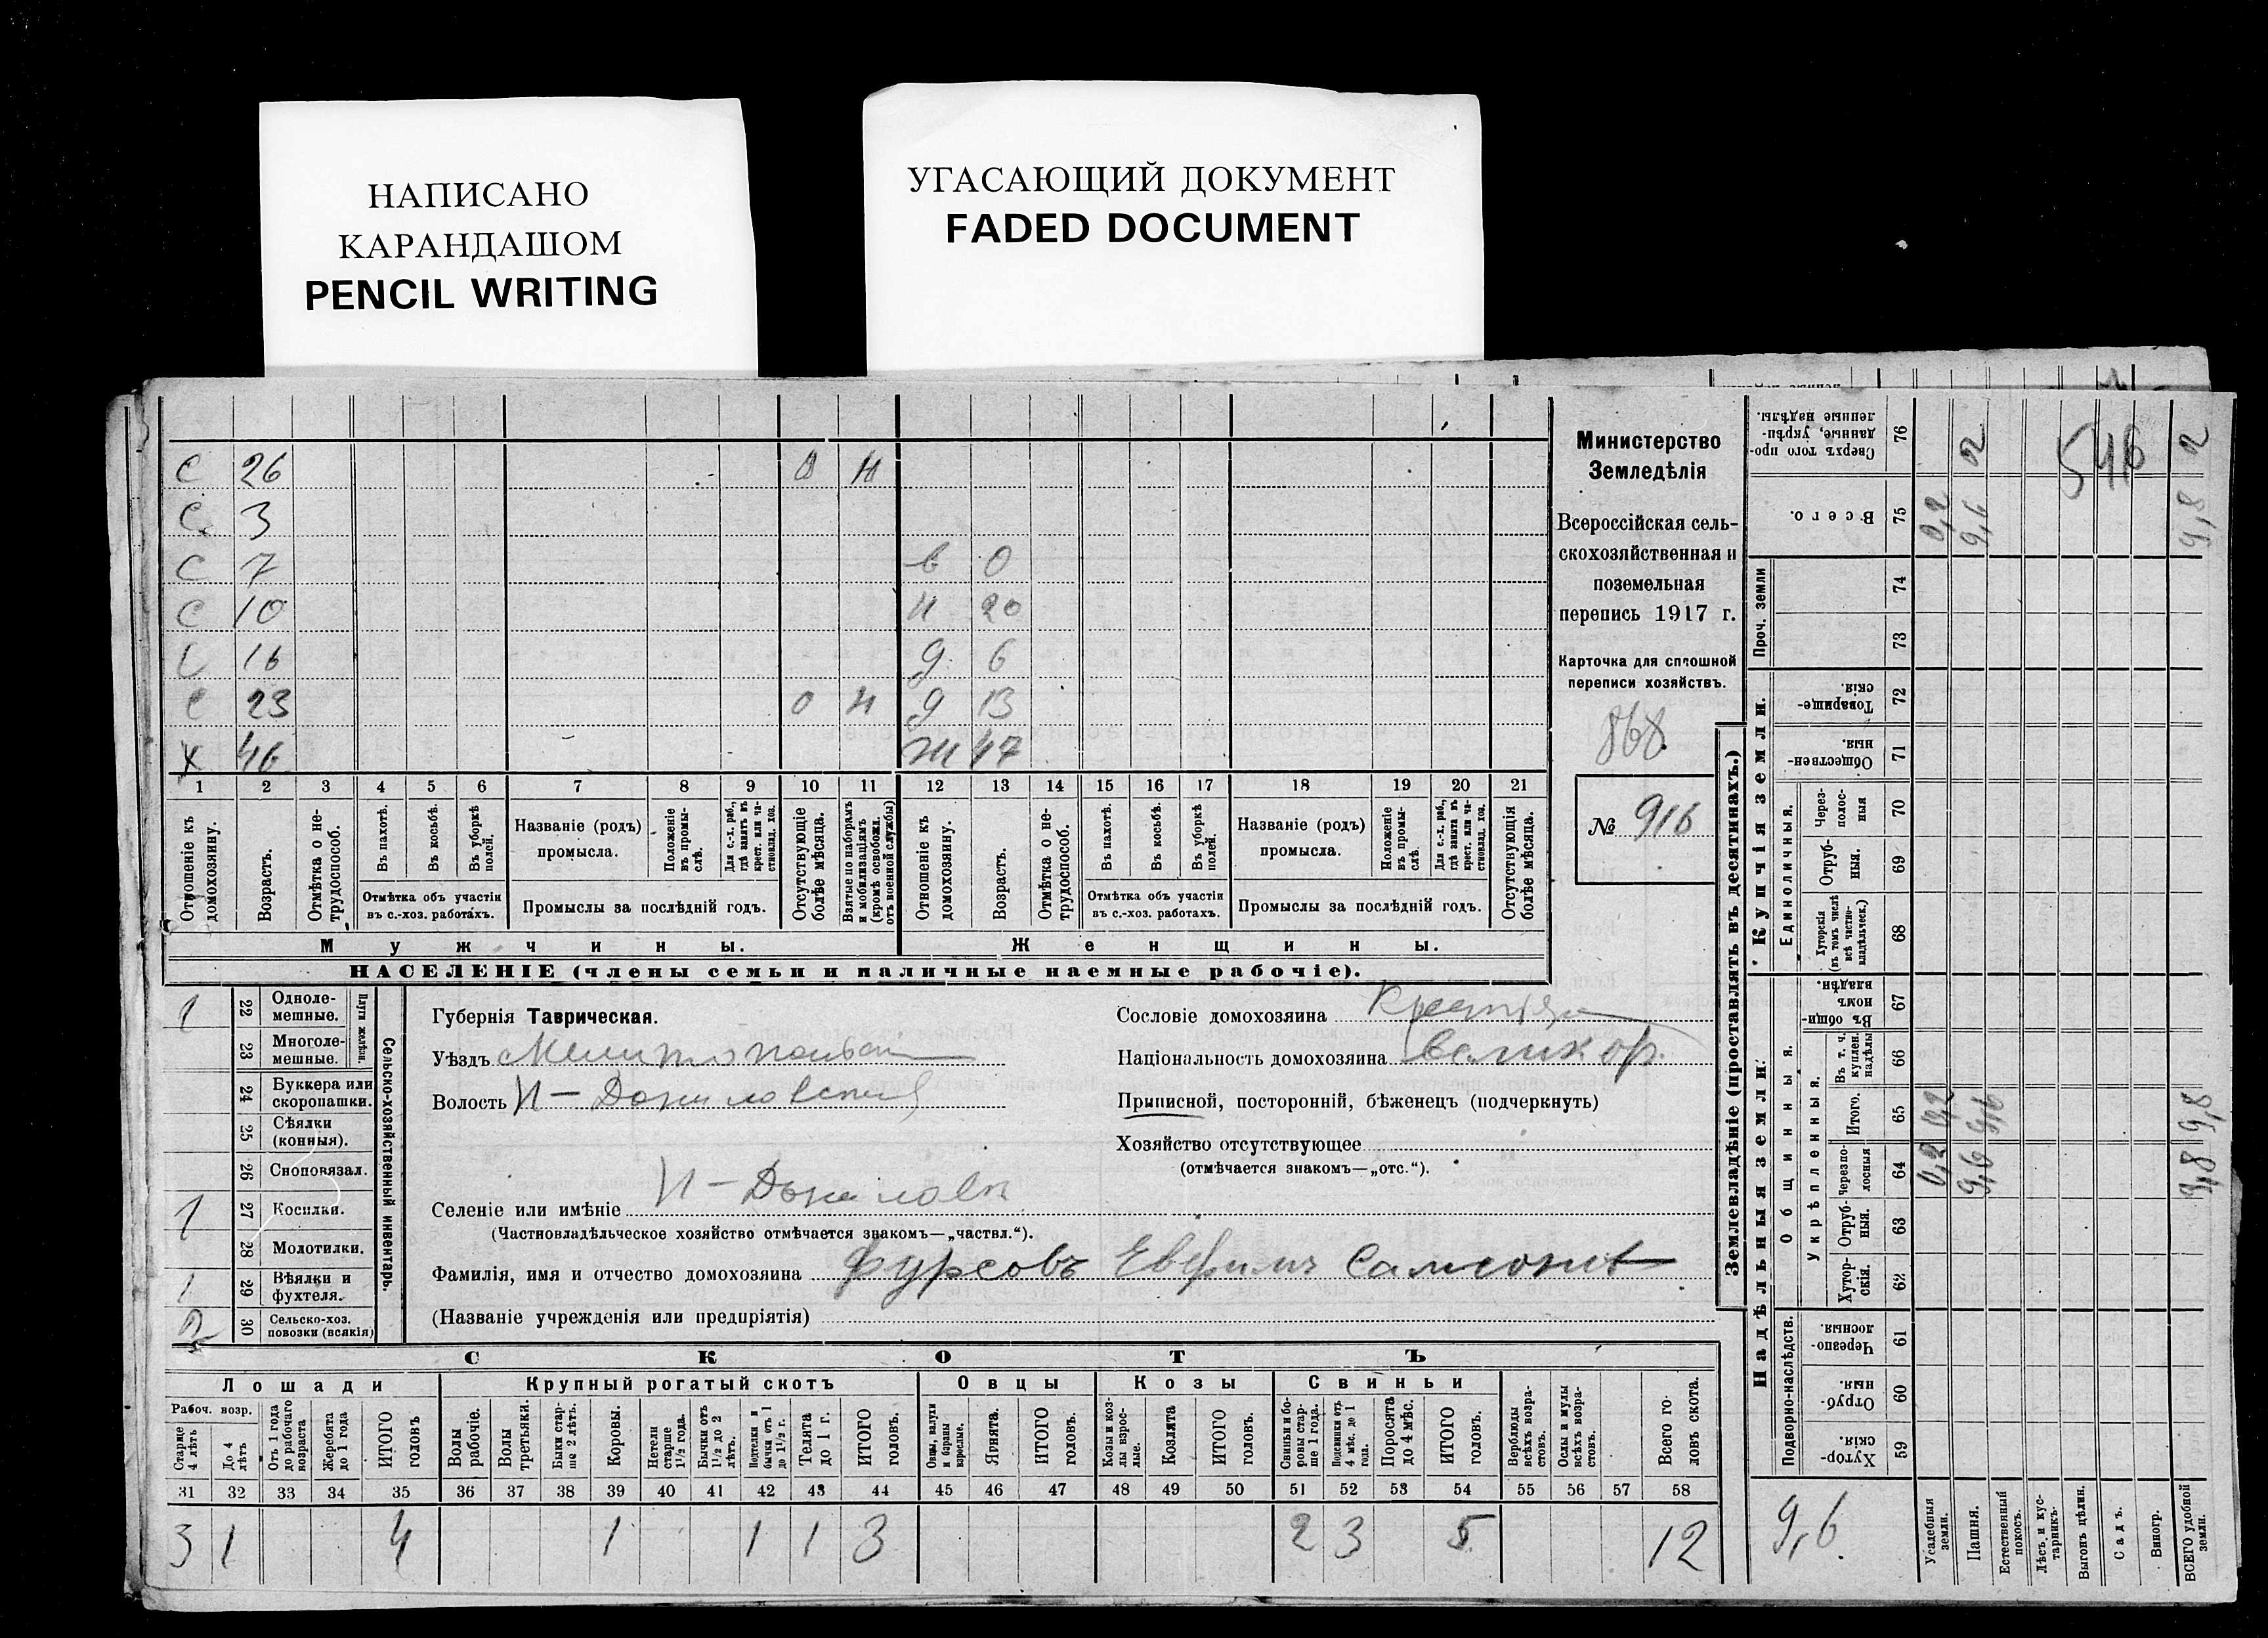 НАПИСАНО
КАРАНДАШОМ
PENCIL WRITING
УГАСАЮЩИЙ ДОКУМЕНТ
FADED DOCUMENT
С 26 0 Н
С 3
С 7 в 0
С 10 Н 20
С 16 д 6
С 23 0 Н д 13
Х 46 Ж 47
1 2 3 4 5 6 7 8 9 10 11 12 13 14 15 16 17 18 19 20 21
Отношеніе къ домохозяину.
Возрастъ.
Отмѣтка о не-трудоспособ.
Въ пахотѣ.
Въ косьбѣ.
Въ уборкѣ полей.
Отмѣтка объ участіи въ с.-хоз. работахъ.
Названіе (родъ) промысла.
Положеніе въ промы-слѣ.
Для с.-х. раб., гдѣ занятъ въ крест. или ча-стновлад. хоз.
Промыслы за послѣдній годъ.
Отсутствующіе болѣе мѣсяца.
Взятые по наборамъ и мобилизаціямъ (кромѣ освобожд. отъ военной службы)
Отношеніе къ домохозяину.
Возрастъ.
Отмѣтка о не-трудоспособ.
Въ пахотѣ.
Въ косьбѣ.
Въ уборкѣ полей.
Отмѣтка объ участіи въ с.-хоз. работахъ.
Названіе (родъ) промысла.
Положеніе въ промы-слѣ.
Для с.-х. раб., гдѣ занята въ крест. или ча-стновлад. хоз.
Промыслы за послѣдній годъ.
Отсутствующія болѣе мѣсяца.
Мужчины.
Женщины.
НАСЕЛЕНІЕ (члены семьи и наличные наемные рабочіе).
Министерство
Земледѣлія
Всероссійская сель-
скохозяйственная и
поземельная
перепись 1917 г.
Карточка для сплошной
переписи хозяйствъ.
868
№ 916
1 22 Одноле-мешные.
23 Многоле-мешные.
Плуги желѣзн.
24 Буккера или скоропашки.
25 Сѣялки (конныя).
26 Сноповязал.
1 27 Косилки.
28 Молотилки.
1 29 Вѣялки и фухтеля.
2 30 Сельско-хоз. повозки (всякія)
Сельско-хозяйственный инвентарь.
Губернія Таврическая.
Уѣздъ
Волость Н-
Селеніе или имѣніе Н-
(Частновладѣльческое хозяйство отмѣчается знакомъ—„частвл.“).
Фамилія, имя и отчество домохозяина Фурсовъ Евфимъ
(Названіе учрежденія или предпріятія)
Сословіе домохозяина
Національность домохозяина великор.
Приписной, посторонній, бѣженецъ (подчеркнуть)
Хозяйство отсутствующее
(отмѣчается знакомъ—„отс.“).
СКОТЪ
Лошади
Крупный рогатый скотъ
Овцы
Козы
Свиньи
Рабоч. возр.
Старше 4 лѣтъ
До 4 лѣтъ
Отъ 1 года до рабочаго возраста
Жеребята до 1 года
ИТОГО головъ
Волы рабочіе.
Волы третьяки.
Быки стар-ше 2 лѣтъ.
Коровы.
Нетели старше 1½ года.
Бычки отъ 1½ до 2 лѣтъ.
Подтелки и бычки отъ 1 до 1½ г.
Телята до 1 г.
ИТОГО головъ.
Овцы, валухи и бараны взрослые.
Ягнята.
ИТОГО головъ.
Козы и коз-лы взрос-лые.
Козлята
ИТОГО головъ.
Свиньи и бо-ровы стар-ше 1 года.
Подсвинки отъ 4 мѣс. до 1 года.
Поросята до 4 мѣс.
ИТОГО головъ.
Верблюды всѣхъ возра-стовъ.
Ослы и мулы всѣхъ возра-стовъ.
Всего го-ловъ скота.
31 32 33 34 35 36 37 38 39 40 41 42 43 44 45 46 47 48 49 50 51 52 53 54 55 56 57 58
3 1 4 1 1 1 3 2 3 5 12
Землевладѣніе (проставлять въ десятинахъ.)
Купчія земли.
Надѣльныя земли.
Сверхъ того про-данные, укрѣп-ленные надѣлы. 76 2 2
Всего. 75 0,2 9,6 9,8
546
Проч. земли 74
73
Товарище-скія. 72
Обществен-ныя. 71
Единоличныя.
Через-полос-ныя 70
Отруб-ныя. 69
Хуторскія (въ томъ числѣ всѣ частно-владѣльческ.) 68
Общинныя.
Въ общи-номъ владѣн. 67
Укрѣпленныя.
Въ т. ч. куплен. надѣлы 66
Итого. 65 0,2 9,6 9,8
Черезпо-лосныя 64 0,2 9,6 9,8
Отруб-ныя. 63
Хутор-скія. 62
Подворно-наслѣдств.
Черезпо-лосныя. 61
Отруб-ныя. 60
Хутор-скія. 59
9,6
Усадебныя земли.
Пашня.
Естественный покосъ.
Лѣсъ и кус-тарникъ.
Выгонъ цѣлин.
Садъ.
Виногр.
ВСЕГО удобной земли.